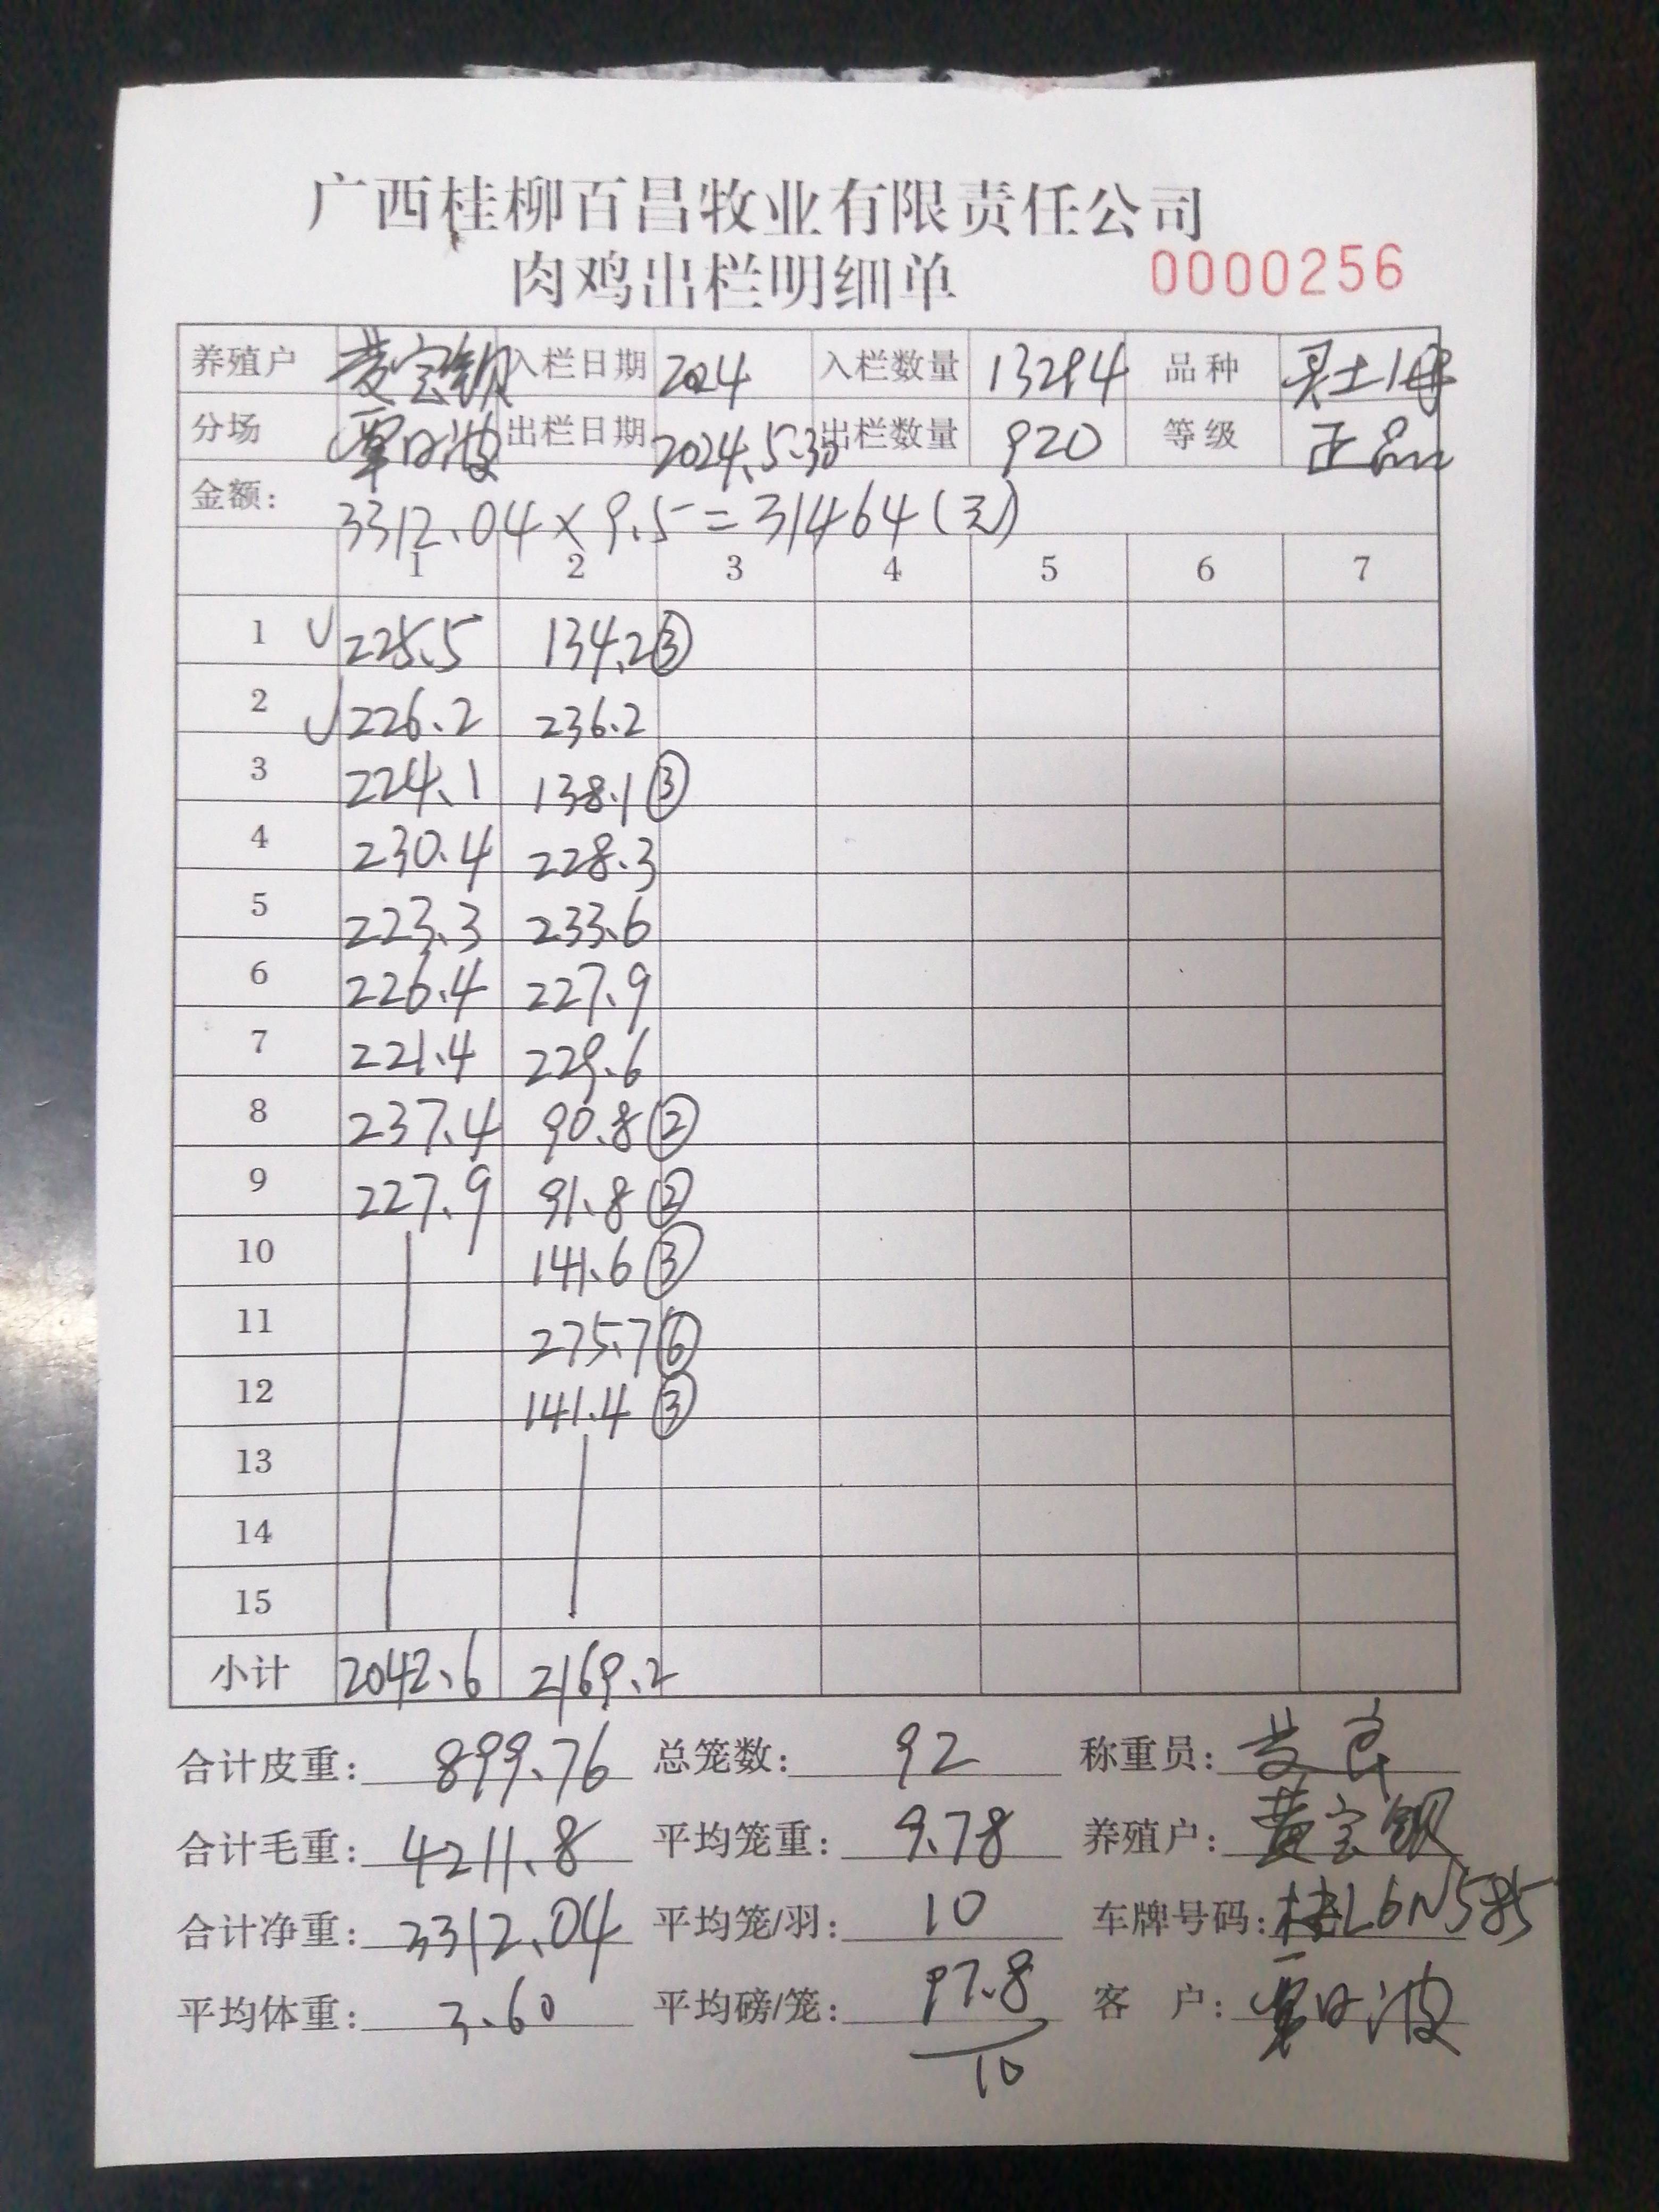 广西桂柳百昌牧业有限责任公司
肉鸡出栏明细单 0000256
养殖户 黄宝钡 入栏日期 2024 入栏数量 13294 品种
分场 覃日波 出栏日期 2024.5.30 出栏数量 920 等级 正品
金额: 3312.04×9.5=31464(元)
1 2 3 4 5 6 7
1 225.5 134.2③
2 226.2 236.2
3 224.1 138.1③
4 230.4 228.3
5 223.3 233.6
6 226.4 227.9
7 221.4 229.6
8 237.4 90.8②
9 227.9 91.8②
10 141.6③
11 275.7⑥
12 141.4③
13
14
15
小计 2042.6 2169.2
合计皮重: 899.76 总笼数: 92 称重员:
合计毛重: 4211.8 平均笼重: 9.78 养殖户: 黄宝钡
合计净重: 3312.04 平均笼/羽: 10 车牌号码: 桂L6N585
平均体重: 3.60 平均磅/笼: 97.8 客 户: 覃日波
10